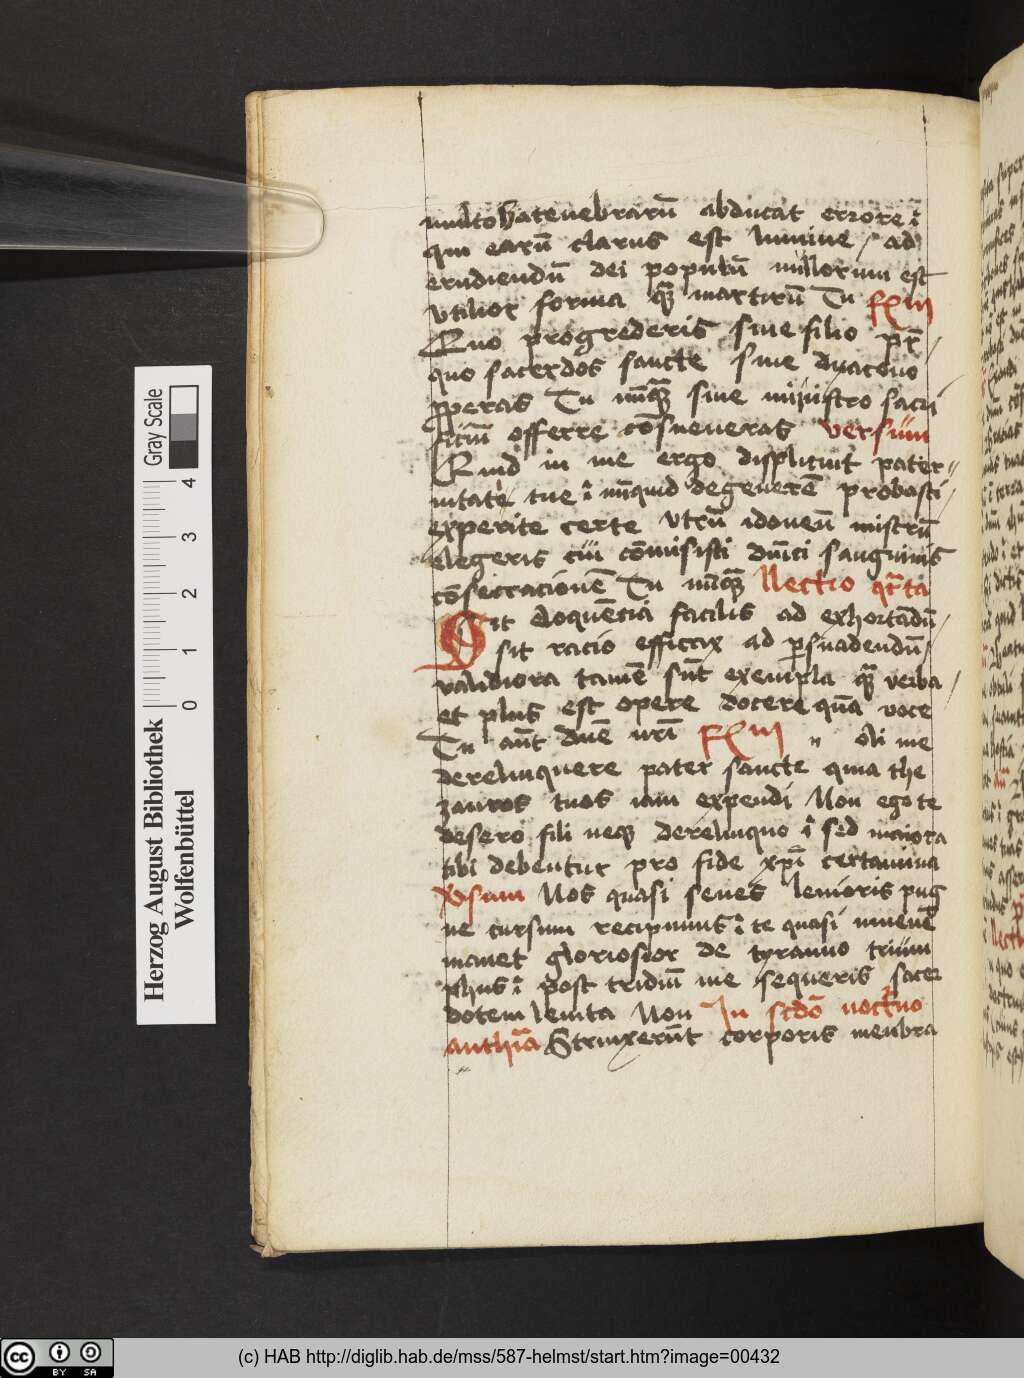 multo hac tenebrarū abducat errore ī
qui earū clarus est lumine / ad
erudiendū dei populū nullorum est
vtilior forma qͣ martirū Tu rxm
Quo progrederis sine filio pr̄ /
quo sacerdos sancte sine dyacono
pperas Tu nūqͣ sine ministro sacri
ficiū offerre cōsueueras versum
Quid in me ergo displicuit pater //
nitate tue ī nūquid degenerē probasti /
experire certe vtrū idoneū mistrū
elegeris cui cōmisisti dn̄ici sanguinis
cōsecracionē Tu nūqͣ llectio qͣrta
Sit eloquēcia facilis ad exhortādū /
sit racio efficax ad psuadendū /
validiora tamē sūt exempla qͣ verba /
et plus est opere docere qͣ̄ voce
Tu aūt dn̄e nr̄i rxm Noli me
derelinquere pater sancte quia the
zauros tuos iam expendi Non ego te
desero fili neqꝫ derelinquo ī sed maiora
tibi debentur pro fide xpī certamina
Vsum Nos quasi senes leuioris pug
ne cursum recipimus ī te quasi iuuenē
manet gloriosior de tyranno trium
phus ī post triduū me sequeris sacer
dotem leuita Non In scdō nocturno
anthīa Strinxerūt corporis menbra
Gray Scale
4 3 2 1 0
Herzog August Bibliothek
Wolfenbüttel
cc BY SA
(c) HAB http://diglib.hab.de/mss/587-helmst/start.htm?image=00432